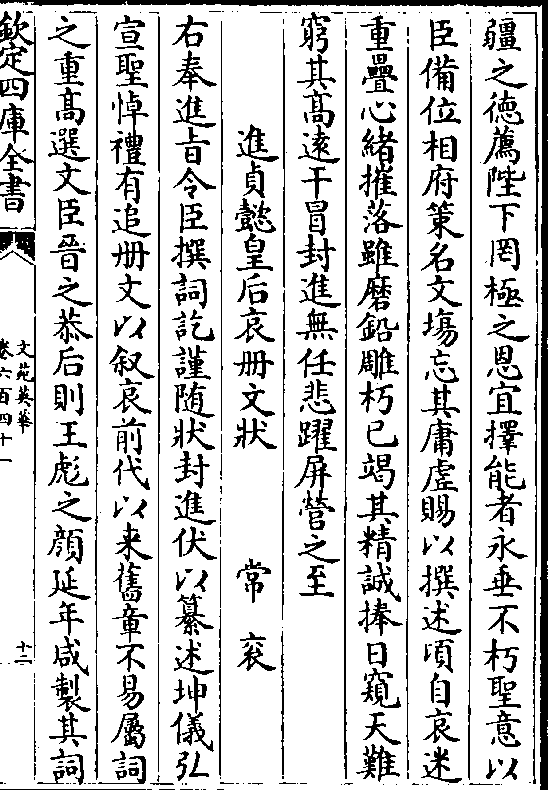 疆之徳薦陛下罔極之恩宜擇能者永垂不朽聖意以
臣備位相府策名文塲忘其庸虚賜以撰述頃自哀迷
重疊心緒摧落雖磨鉛雕朽已竭其精誠捧日窺天難
窮其髙遠干冒封進無任悲躍屏營之至
進貞懿皇后哀册文狀 常衮
右奉進㫖令臣撰詞訖謹随狀封進伏以纂述坤儀弘
宣聖悼禮有追册文以叙哀前代以来舊章不易屬詞
之重髙選文臣晉之恭后則王彪之顔延年咸製其詞
欽定四庫全書
文苑英華
卷六百四十一
十二